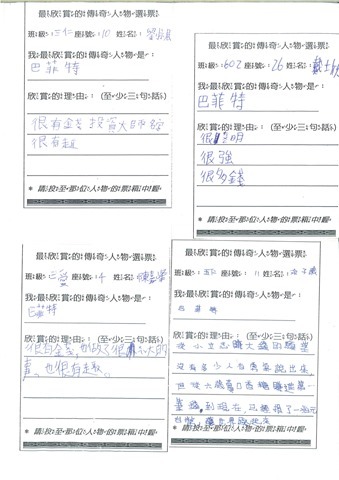 最欣賞的傳奇人物選票
班級：三仁 座號：10 姓名：
我最欣賞的傳奇人物是：
巴菲特
欣賞的理由：（至少三句話）
很有金錢 投資大師
很有趣
* 請投至那位人物的票箱中喔。
最欣賞的傳奇人物選票
班級：602 座號：26 姓名：戴士
我最欣賞的傳奇人物是：
巴菲特
欣賞的理由：（至少三句話）
很聰明
很強
很多錢
* 請投至那位人物的票箱中喔。
最欣賞的傳奇人物選票
班級：三愛 座號：4 姓名：陳
我最欣賞的傳奇人物是：
巴菲特
欣賞的理由：（至少三句話）
很有金錢，也做了很 大的
事。也很有趣。
* 請投至那位人物的票箱中喔。
最欣賞的傳奇人物選票
班級：五仁 座號：11 姓名：
我最欣賞的傳奇人物是：
巴菲特
欣賞的理由：（至少三句話）
從小立志賺大錢的願望
沒有多少人有勇氣跳出來，
但從六歲賣口香糖賺進第一
筆錢，到現在
* 請投至那位人物的票箱中喔。